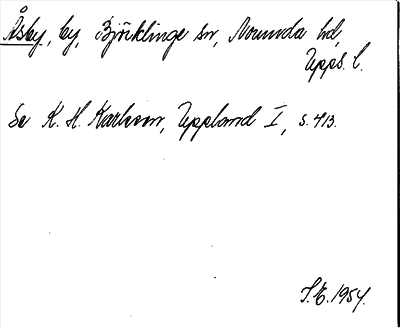 Åsby, by, Björklinge sn, Norunda hd,
Upps. l.
Se K. H. Karlsson, Uppland I, s. 413.
S.E. 1954.